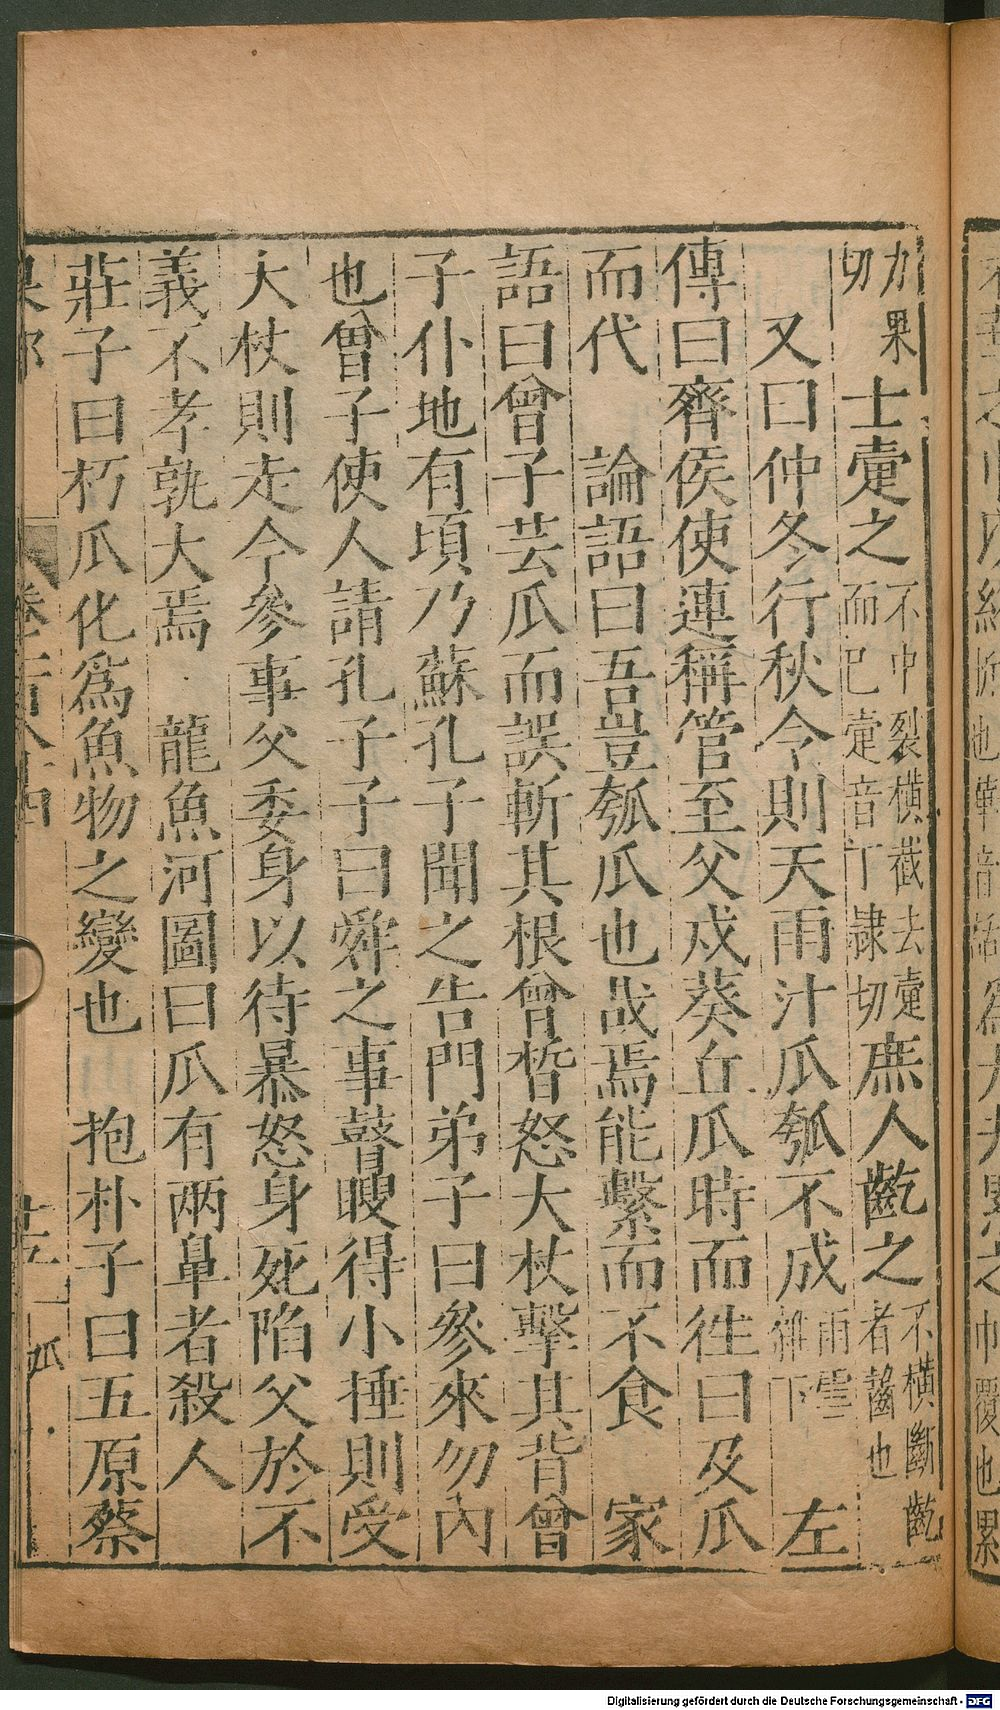 力果切士疐之不中裂橫截去疐而已疐音丁隷切庶人齕之不橫斷齕者齧也
又曰仲冬行秋令則天雨汁瓜瓠不成雨雪雜下 左
傳曰齊侯使連稱管至父戍葵丘瓜時而徃曰及瓜
而代 論語曰吾豈瓠瓜也哉焉能繫而不食 家
語曰曾子芸瓜而誤斬其根曾晳怒大杖擊其背曾
子仆地有頃乃蘇孔子聞之告門弟子曰參來勿內
也曾子使人請孔子子曰舜之事瞽瞍得小捶則受
大杖則走今參事父委身以待暴怒身死陷父於不
義不孝孰大焉 龍魚河圖曰瓜有兩鼻者殺人
莊子曰朽瓜化爲魚物之變也 抱朴子曰五原蔡
Digitalisierung gefördert durch die Deutsche Forschungsgemeinschaft - DFG